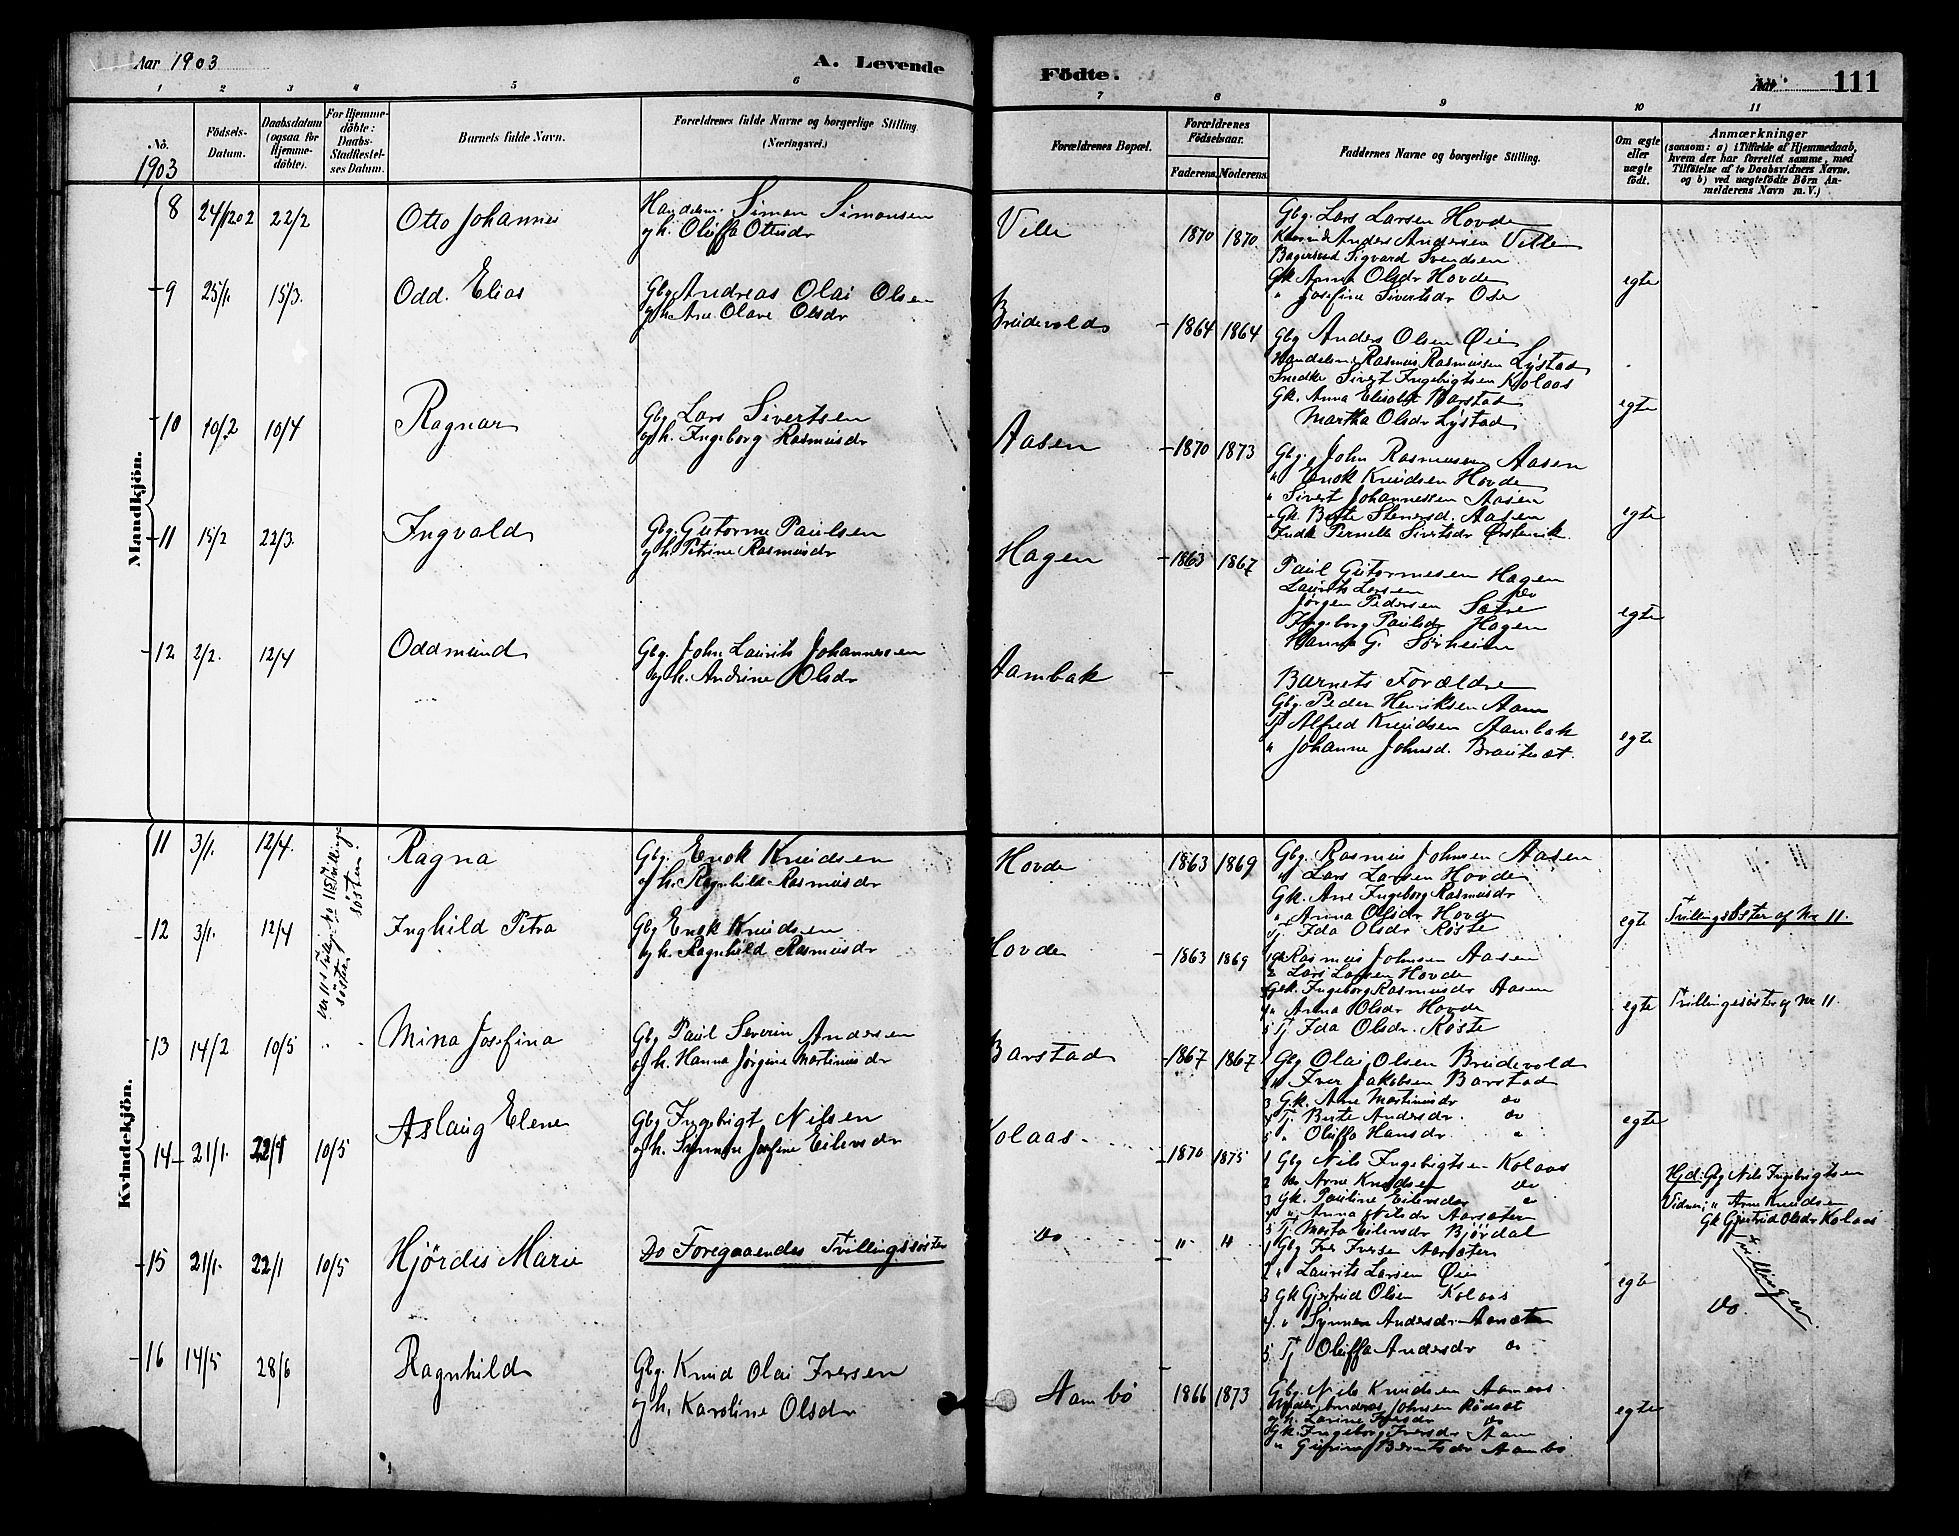 Aar 1903
A. Levende
Födte.
Aar
111
1 2 3 4 5 6 7 8 9 10 11
No.
1903
Födsels-Datum.
Daabsdatum (ogsaa for Hjemme-döbte).
For Hjemme-döbte: Daabs-Stadfestel-ses Datum.
Barnets fulde Navn.
Forældrenes fulde Navne og borgerlige Stilling.
(Næringsvei.)
Forældrenes Bopæl.
Forældrenes Födselsaar.
Faderens. Moderens.
Faddernes Navne og borgerlige Stilling.
Om ægte eller uægte födt.
Anmærkninger
(saasom: a) i Tilfælde af Hjemmedaab, hvem der har forrettet samme, med Tilföielse af to Daabsvidners Navne, og b) ved uægtefödte Börn An-melderens Navn m. V.)
Mandkjön.
8 24/12 02 22/2 Otto Johannes
Simon Simonsen
og h. Oluffa Ottesdr
Velle 1870 1870
Gbg. Lars Larsen Hovde
Anders Andersen Velle
Sigvard Svendsen
Gk Anna Olsdr Hovde
" Josefine Sivertsdr Ose
egte
9 25/1. 15/3. Odd. Elias
Gbg Andreas Olai Olsen
og h. Ane Olave Olsdr
Breidevolds 1864 1864
Gbg Anders Olsen Øie
Handelsm. Rasmus Rasmussen Lystad
Snedker Sivert Ingebrigtsen Kolaas
Gk. Anna Elisabet Barstad
Martha Olsdr Lystad
egte
10 10/2 10/4 Ragnar
Gbg Lars Sivertsen
og h. Ingeborg Rasmusdr
Aasen 1870 1873
Gbg. John Rasmussen Aasen
" Enok Knudsen Hovde
" Sivert Johannessen Aasen
Gk. Berte Stenersd. Aasen
Pernelle Sivertsdr Ørstenvik
egte
11 15/2 22/3. Ingvald
Gbg. Gutorme Paulsen
og h. Petrine Rasmusdr
Hagen 1863 1867
Paul Gutormesen Hagen
Laurits Larsen do
Jørgen Pedersen Sætre
Ingeborg Paulsdr Hagen
Hanna G. Sørheim
egte
12 2/2. 12/4 Oddmund
Gbg. John Laurits Johannessen
og h. Andrine Olsdr
Aambak
Barnets Forældre
Gbg. Peder Henriksen Aam
Tj Alfred Knudsen Aambak
" Johanne Johnsd. Brautesæt.
egte
Kvindekjön.
11 3/1. 12/4. Ragna
Gbg. Enok Knudsen
og h. Ragnhild Rasmusdr
Hovde 1863 1869
Gbg. Rasmus Johnsen Aasen
" Lars Larsen Hovde
Gk. Ane Ingeborg Rasmusdr
" Anna Olsdr Hovde
Tj. Ida Olsdr Røste
egte Tvillingsøster af Nr 11.
12 3/1. 12/4 Inghild Petra
Gbg Enok Knudsen
og h. Ragnhild Rasmusdr
Hovde 1863 1869
1 Gb Rasmus Johnsen Aasen
2 Lars Larsen Hovde
3 Gk. Ingeborg Rasmusdr Aasen
4 " Anna Olsdr Hovde
5 Tj Ida Olsdr. Røste
egte Tvillingesøster af Nr 11.
13 14/2 10/5 " Mina Josefina
Gbg Paul Severin Andersen
og h. Hanna Jørgine Martinusdr
Barstad 1867 1867
1 Gbg Olai Olsen Breidevold
2 " Iver Jakobsen Barstad
3 Gk. Ane Martinusdr do
4 Tj. Berte Andersdr. do
5 " Oluffa Hansdr. "
egte
14 21/1. 22/1 10/5 Aslaug Elene
Gbg Ingebrigt Nilsen
og h. Synnøve Josfine Eilevsdr
Kolaas. 1870 1875
1 Gbg Nils Ingebrigtsen Kolaas
2 do Arne Knudsen do
3 Gk. Pauline Eilevsdr "
4 " Anna Nilsdr Aarsæter
5 Tj. Marta Eilevsdr Bjørdal
Hjd: Gbg Nils Ingebrigtsen
Vidner; " Arne Knudsen
Gk Gjertrud Olsdr Kolaas
Tvillinger
15 21/1. 22/1 10/5 Hjördis Marie
Do Foregaaendes Tvillingsøster
Do " "
1 Gbg Iver Iversen Aarsæter
2 " Laurits Larsen Øie
3 Gk Gjertrud Olsen Kolaas
4 " Synnøve Andersdr Aarsæter
5 Tj Oluffa Andersdr do
egte do.
16 14/5 28/6 Ragnhild
Gbg. Knud Olai Iversen
og h. Karoline Olsdr
Aambö 1866 1873
Gbg. Nils Knudsen Aamaas
Andreas Johnsen Rødsæt
og h. Larine Iversdr do
Gk. Ingeborg Iversdr Aam
" Berntsdr Aambö
egte